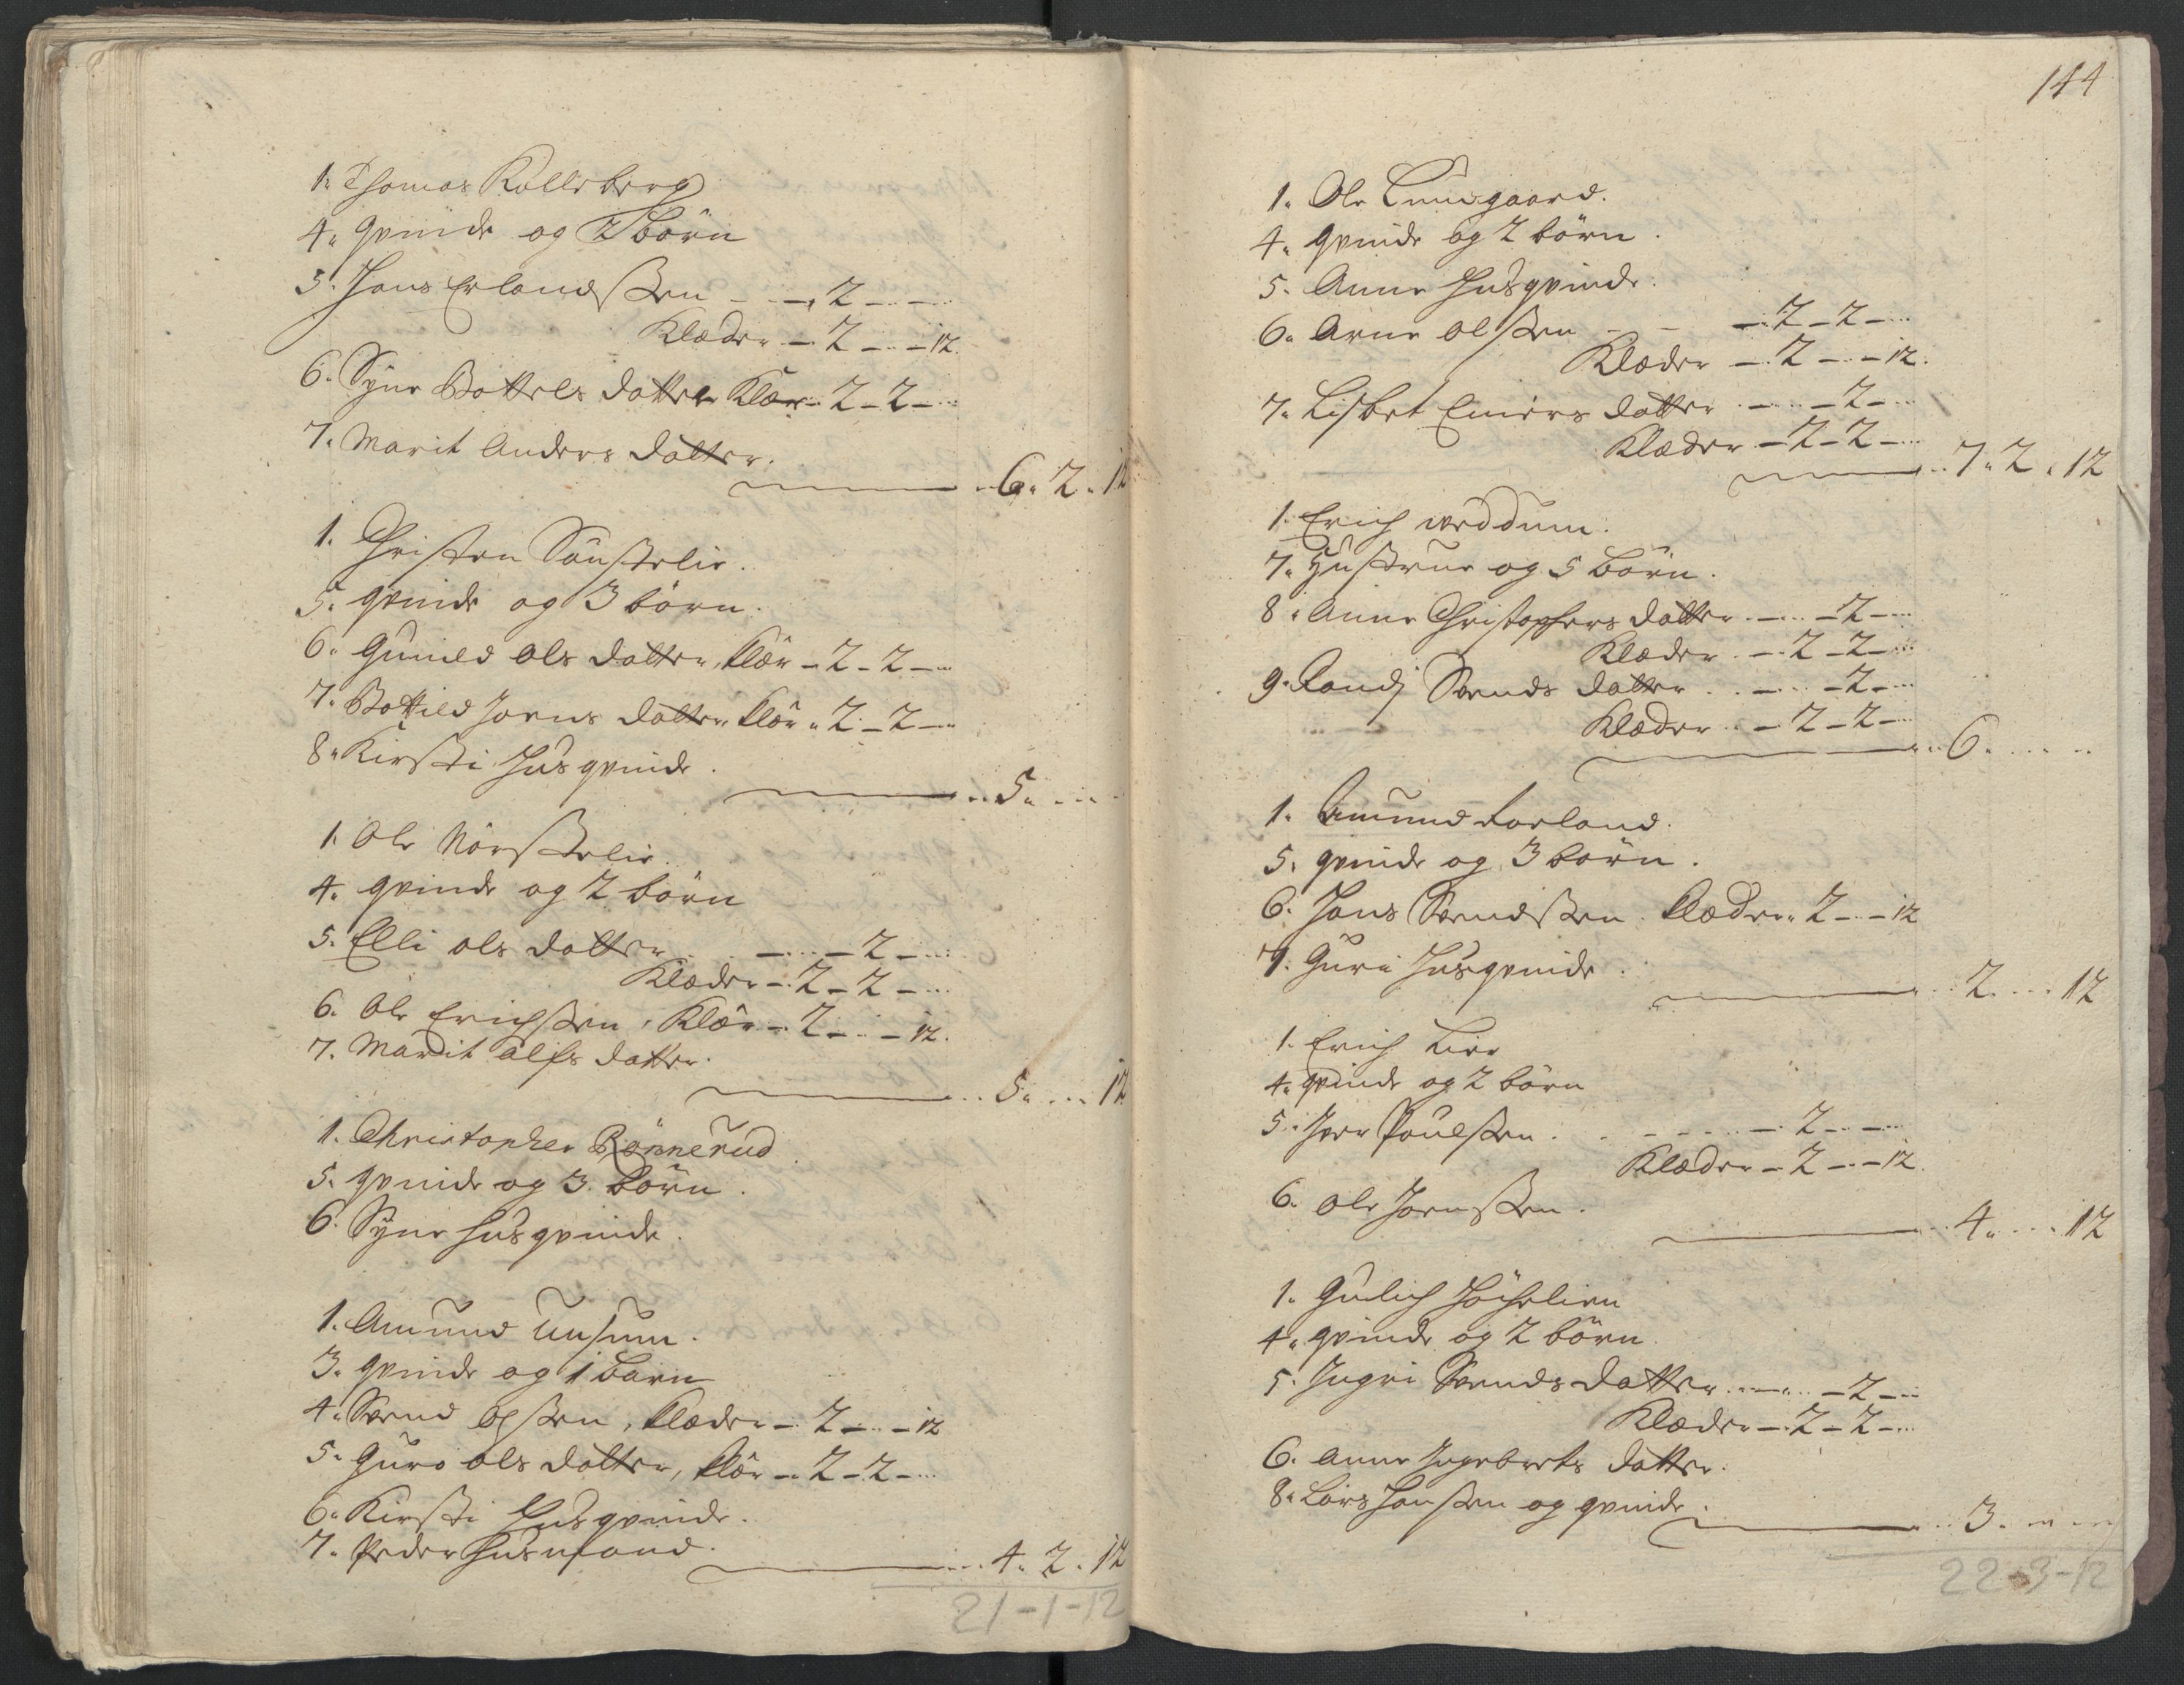 1. Thomas Kolleberg
4. qvinde og 2 børn
5. Hans Erlandssen - - 2 - -
Klæder - 2 - - 12.
6. Syne Bottels datter Klær - 2 - 2 -
7. Marit Anders datter.
6. 2. 12
1. Christen Sønsteliе.
5. qvinde og 3 børn.
6. Gunild Ols datter, klær - 2 - 2 -
7. Bottild Joens datter klær - 2 - 2 -
8. Kirsti Husqvinde.
5.
1. Ole Nørstelie.
4. qvinde og 2 børn
5. Elli ols datter - - 2 -
Klæder - 2 - 2 -
6. Ole Erichssen, Klær - 2 - - 12.
7. Marit alfs datter.
5. . . . 12
1. Christopher Rønnerud.
5. qvinde og 3. børn.
6. Syne husqvinde.
1. Amund Unsum.
3. qvinde og 1 barn
4. Svend olssen, klæder - 2 - - 12
5. Guro ols datter, klær - 2 - 2 -
6. Kirsti Husqvinde.
7. Peder Husmand.
4. 2. 12
21-1-12
144
1. Ole Lundgaard.
4. qvinde og 2 børn.
5. Anne Husqvinde.
6. Arne olssen - - 2 - 2 -
Klæder - 2 - - 12.
7. Lisbet Einers datter - - 2 -
Klæder - 2 - 2 -
7. 2. 12
1. Erich weddum.
7. Hustrue og 5 børn.
8. Anne Christophers datter - - 2 -
Klæder - 2 - 2 -
9. Randj Svends datter - - 2 -
Klæder - 2 - 2 -
6.
1. Amund Forland.
5. qvinde og 3 børn.
6. Hans Svendssen. klæder 2 - - 12
7. Guri Husqvinde.
2. . . . 12
1. Erich Lier
4. qvinde og 2 børn
5. Iver Poulssen. - - 2 - -
Klæder - 2 - - 12.
6. Ole Joenssen.
4. . . . 12
1. Gulich
4. qvinde og 2 børn.
5. Ingri Svends datter - - 2 -
Klæder - 2 - 2 -
6. Anne Ingebrets datter.
8. Lars Hanssen og qvinde.
3.
22-3-12